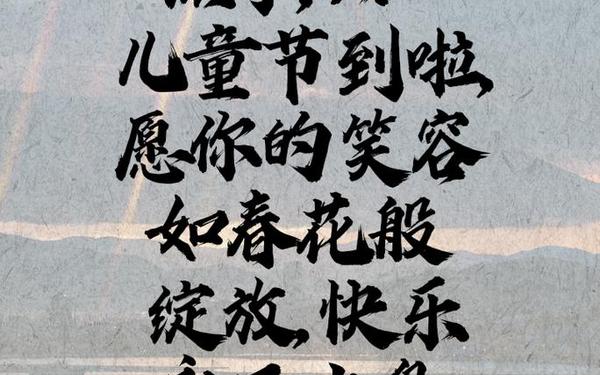 儿童节到啦
愿你的笑容
如春花般
绽放,快乐